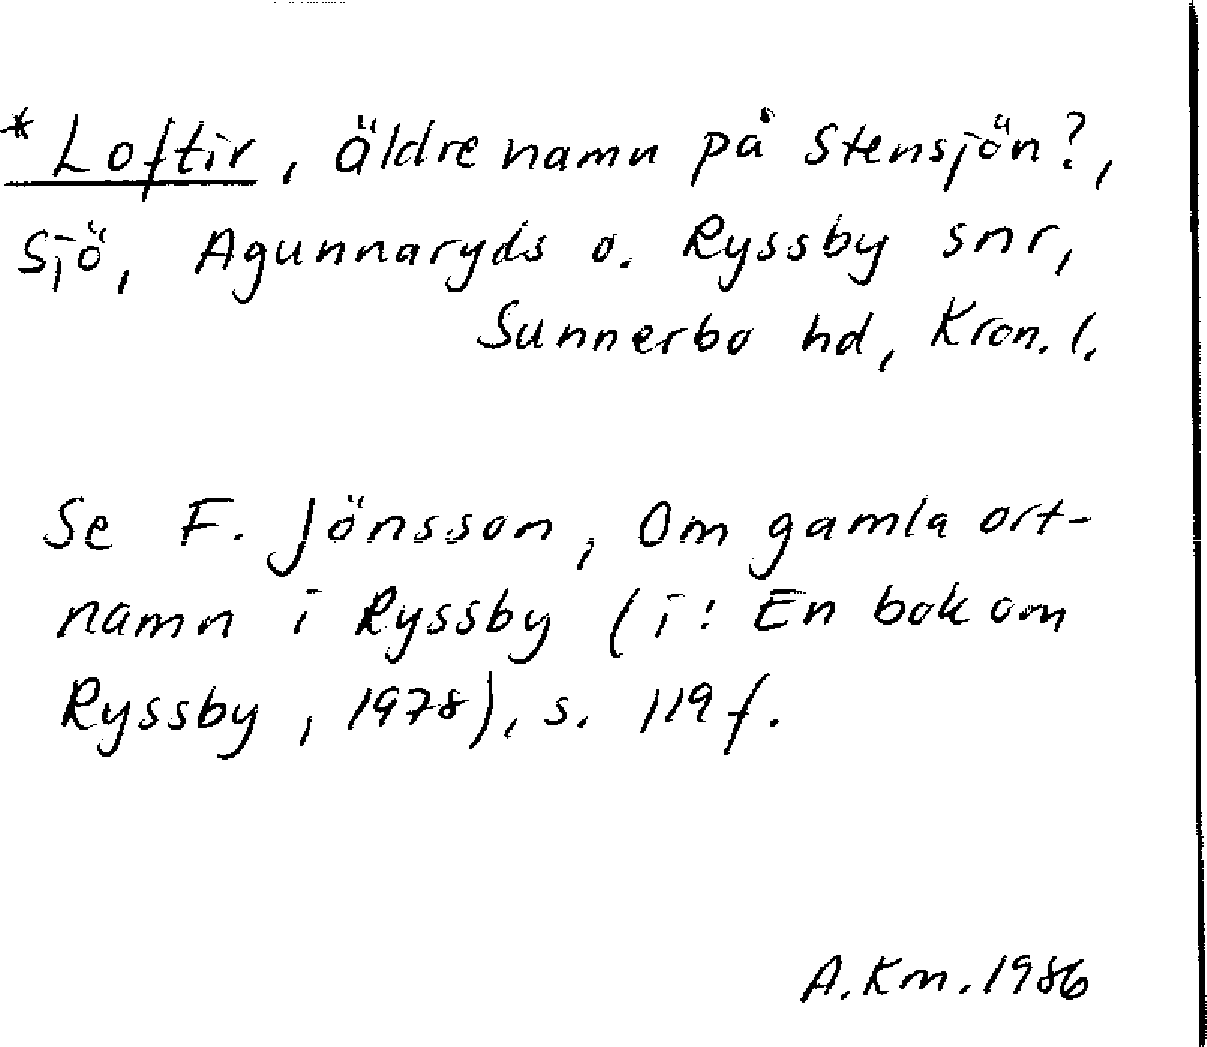 *Loftir, äldre namn på Stensjön?,
Sjö, Agunnaryds o. Ryssby snr,
Sunnerbo hd, Kron. l.
Se F. Jönsson, Om gamla ort-
namn i Ryssby (i: En bok om
Ryssby, 1978), s. 119 f.
A. Km. 1986